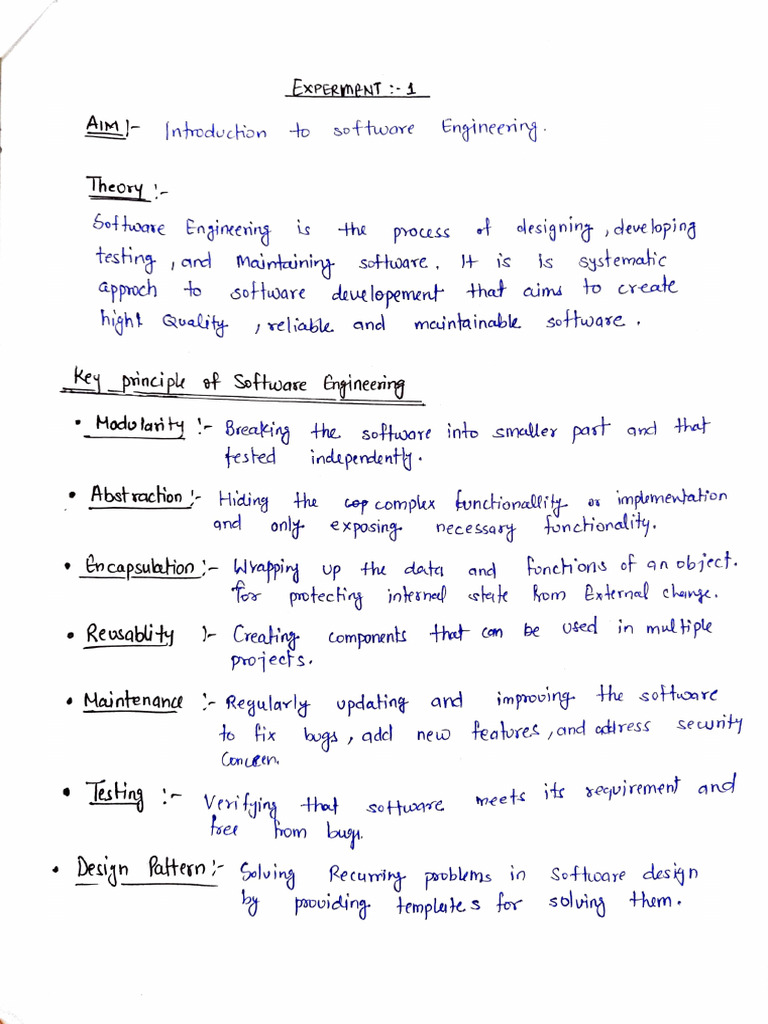 EXPERMENT :- 1
AIM :- Introduction to software Engineering.
Theory :-
Software Engineering is the process of designing, developing
testing, and Maintaining software. It is is systematic
approch to software developement that aims to create
hight Quality, reliable and maintainable software.
Key principle of Software Engineering
• Modularity :- Breaking the software into smaller part and that
tested independently.
• Abstraction :- Hiding the cop complex functionallity or implementation
and only exposing necessary functionality.
• Encapsulation :- Wrapping up the data and functions of an object.
for protecting internal state from External change.
• Reusablity :- Creating components that can be used in multiple
projects.
• Maintenance :- Regularly updating and improving the software
to fix bugs, add new features, and address security
Concern.
• Testing :- Verifying that software meets its requirement and
free from bugs.
• Design Pattern :- Solving Recurring problems in Software design
by providing templates for solving them.